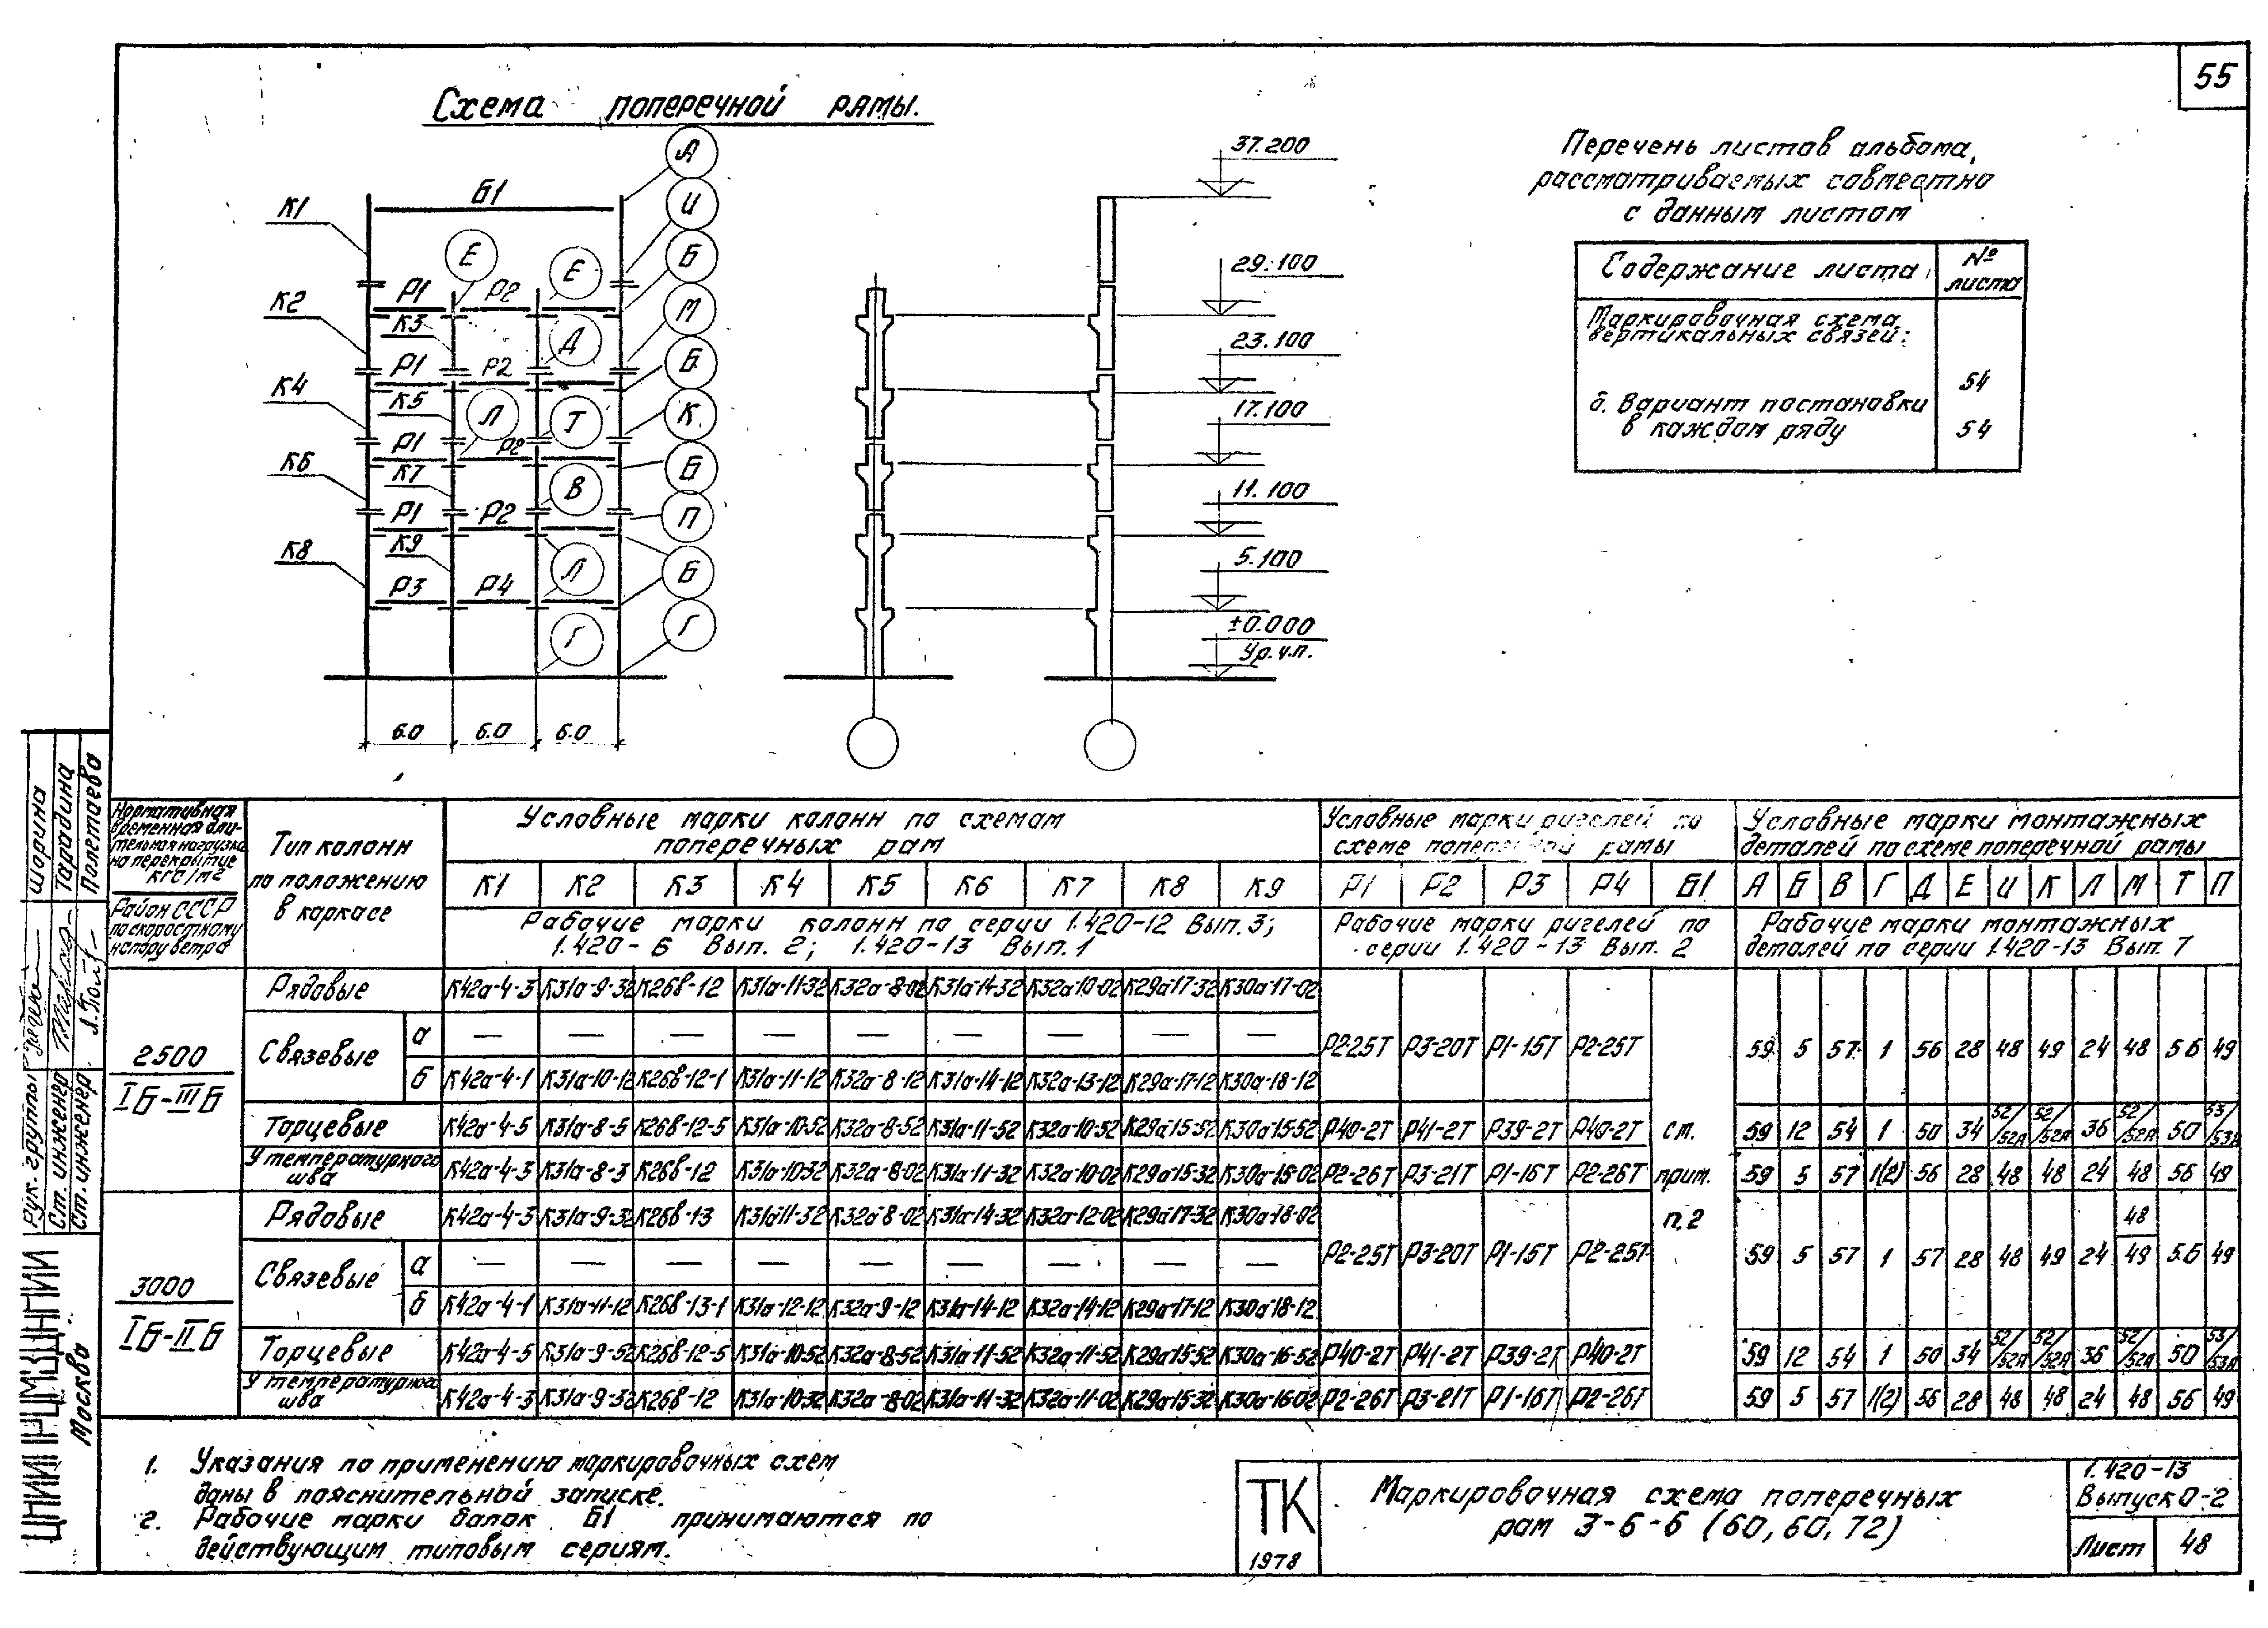 55
Схема поперечной рамы.
А
И
Б
М
Б
К
Б
П
Б
Г
Е
Е
Д
Л
Т
В
Л
Г
Б1
К1
К2
К4
К6
К8
Р1 Р2
К3
Р1 Р2
К5
Р1 Р2
К7
Р1 Р2
К9
Р3 Р4
6.0 6.0 6.0
37.200
29.100
23.100
17.100
11.100
5.100
±0.000
Ур.ч.п.
Перечень листов альбома,
рассматриваемых совместно
с данным листом
Содержание листа № листа
Маркировочная схема
вертикальных связей: 54
б. Вариант постановки
в каждом ряду 54
Нормативная
временная дли-
тельная нагрузка
на перекрытие
кгс/м2
Район СССР
по скоростному
напору ветра
Тип колонн
по положению
в каркасе
Условные марки колонн по схемам
поперечных рам
К1 К2 К3 К4 К5 К6 К7 К8 К9
Рабочие марки колонн по серии 1.420-12 Вып.3;
1.420-6 Вып. 2; 1.420-13 Вып.1
Условные марки ригелей по
схеме поперечной рамы
Р1 Р2 Р3 Р4 Б1
Рабочие марки ригелей по
серии 1.420-13 Вып. 2
Условные марки монтажных
деталей по схеме поперечной рамы
А Б В Г Д Е И К Л М Т П
Рабочие марки монтажных
деталей по серии 1.420-13 Вып. 7
2500
IБ-IIIБ
Рядовые К42а-4-3 К31а-9-32 К26в-12 К31а-11-32 К32а-8-02 К31а-14-32 К32а-10-02 К29а-17-32 К30а-17-02
Связевые
а — — — — — — — — —
Р2-25Т Р3-20Т Р1-15Т Р2-25Т 59 5 57 1 56 28 48 49 24 48 56 49
б К42а-4-1 К31а-10-12 К26в-12-1 К31а-11-12 К32а-8-12 К31а-14-12 К32а-13-12 К29а-17-12 К30а-18-12
Торцевые К42а-4-5 К31а-8-5 К26в-12-5 К31а-10-52 К32а-8-52 К31а-11-52 К32а-10-52 К29а-15-52 К30а-15-52 Р40-2Т Р41-2Т Р39-2Т Р40-2Т ст. 59 12 54 1 50 34 52/52А 52/52А 36 52/52А 50 53/53А
У температурного
шва К42а-4-3 К31а-8-3 К26в-12 К31а-10-32 К32а-8-02 К31а-11-32 К32а-10-02 К29а-15-32 К30а-15-02 Р2-26Т Р3-21Т Р1-16Т Р2-26Т прим. 59 5 57 1(2) 56 28 48 48 24 48 56 49
3000
IБ-IIБ
Рядовые К42а-4-3 К31а-9-32 К26в-13 К31а-11-32 К32а-8-02 К31а-14-32 К32а-12-02 К29а-17-32 К30а-18-02 п.2
Связевые
а — — — — — — — — —
Р2-25Т Р3-20Т Р1-15Т Р2-25Т 59 5 57 1 57 28 48 49 24 48/49 56 49
б К42а-4-1 К31а-11-12 К26в-13-1 К31а-12-12 К32а-9-12 К31а-14-12 К32а-14-12 К29а-17-12 К30а-18-12
Торцевые К42а-4-5 К31а-9-52 К26в-12-5 К31а-10-52 К32а-8-52 К31а-11-52 К32а-11-52 К29а-15-52 К30а-16-52 Р40-2Т Р41-2Т Р39-2Т Р40-2Т 59 12 54 1 50 34 52/52А 52/52А 36 52/52А 50 53/53А
У температурного
шва К42а-4-3 К31а-9-32 К26в-12 К31а-10-32 К32а-8-02 К31а-11-32 К32а-11-02 К29а-15-32 К30а-16-02 Р2-26Т Р3-21Т Р1-16Т Р2-26Т 59 5 57 1(2) 56 28 48 48 24 48 56 49
1. Указания по применению маркировочных схем
даны в пояснительной записке.
2. Рабочие марки балок Б1 принимаются по
действующим типовым сериям.
ТК
1978
Маркировочная схема поперечных
рам 3-6-6 (60, 60, 72)
1.420-13
Выпуск 0-2
Лист 48
Рук. группы Шорина
Ст. инженер Тарадина
Ст. инженер Полетаева
Москва